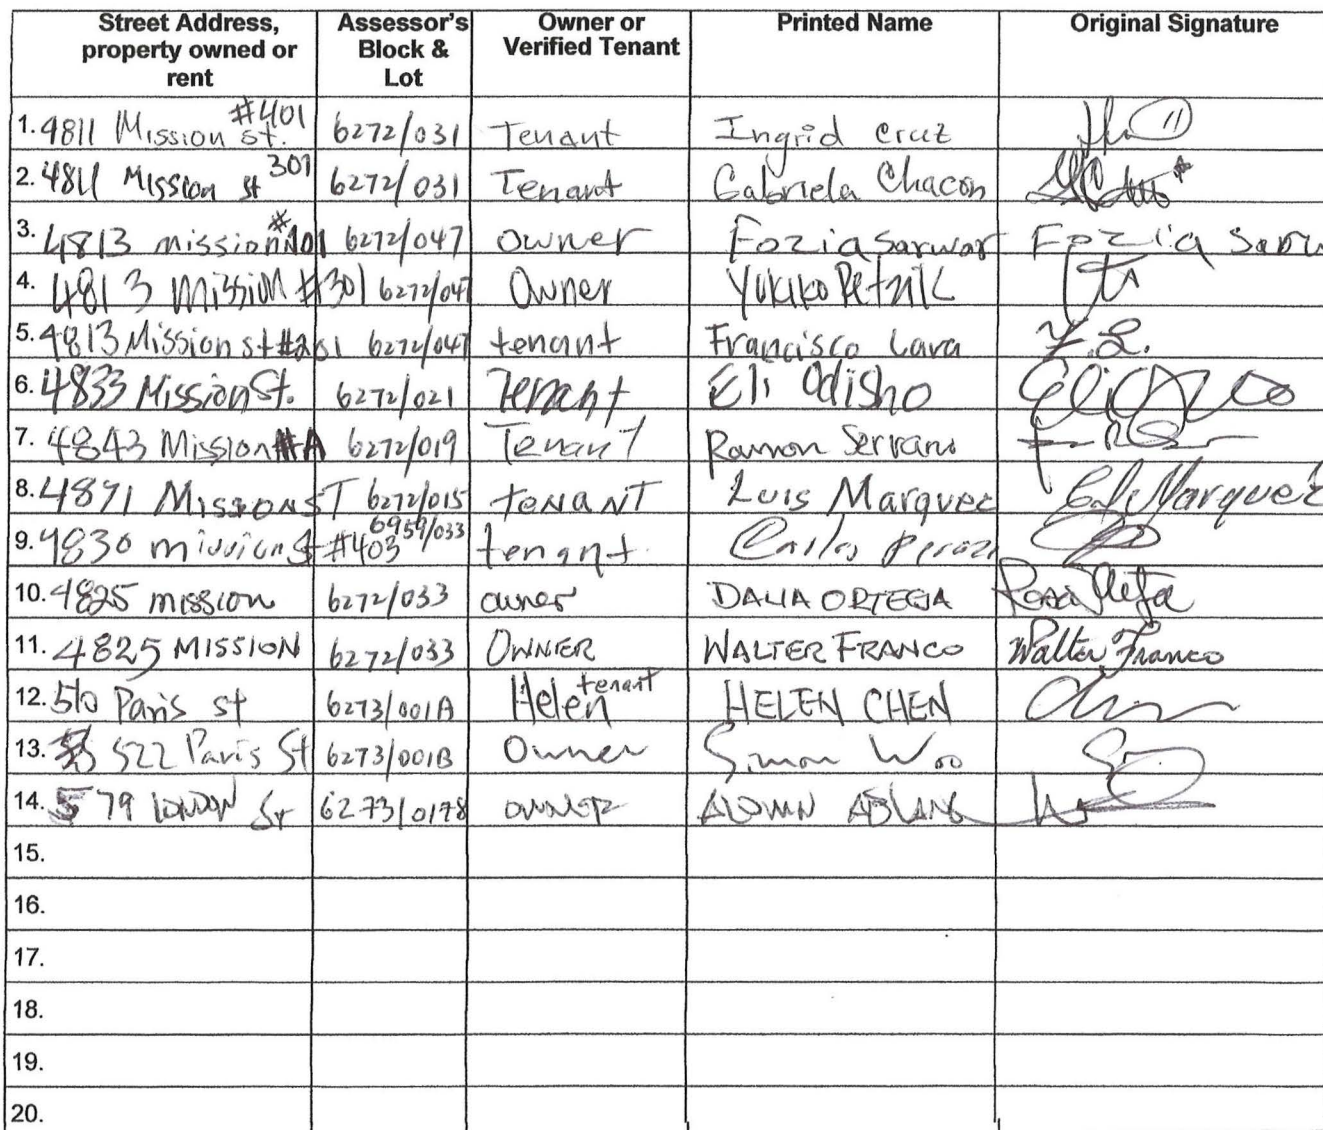 Street Address, property owned or rent | Assessor's Block & Lot | Owner or Verified Tenant | Printed Name | Original Signature
1. 4811 Mission St. #401 6272/031 Tenant Ingrid Cruz
2. 4811 Mission St 301 6272/031 Tenant Gabriela Chacon
3. 4813 mission #101 6272/047 owner Fozia Sarwar Fozia Sarw
4. 4813 Mission #301 6272/047 Owner Yukiko Petnik
5. 4813 Mission st #201 6272/047 tenant Francisco Lara F.L.
6. 4833 Mission St. 6272/021 Tenant Eli Odisho
7. 4843 Mission #A 6272/019 Tenant Ramon Serrano
8. 4871 Mission ST 6272/015 teNaNT Luis Marquez Marquez
9. 4830 mission st #403 6959/033 tenant. Carlos
10. 4825 mission 6272/033 owner DALIA ORTEGA
11. 4825 MISSION 6272/033 OWNER WALTER FRANCO Walter Franco
12. 510 Paris st 6273/001A Helen tenant HELEN CHEN
13. 522 Paris St 6273/001B Owner Simon Woo
14. 579 LONDON St 6273/017B OWNER
15.
16.
17.
18.
19.
20.